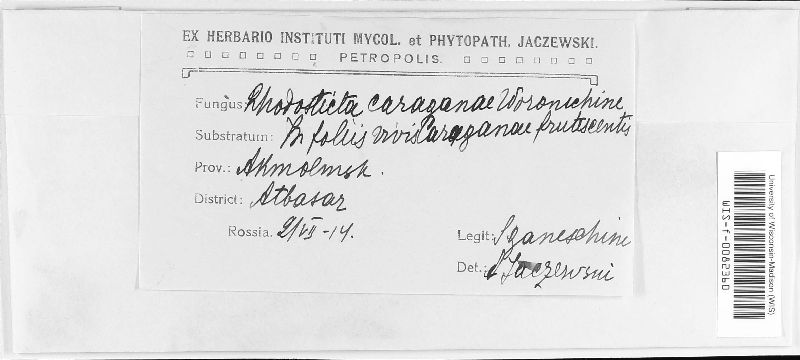 EX HERBARIO INSTITUTI MYCOL. et PHYTOPATH. JACZEWSKI.
PETROPOLIS.
Fungus: Rhodosticta caraganae Woronichine
Substratum: In foliis vivis Caraganae frutiscentis
Prov.: Akmolinsk.
District: Atbasar
Rossia. 2/VII-14.
Legit: S. Ganeschine
Det.: A Jaczewski
University of Wisconsin-Madison (WIS)
WIS-f-0082360